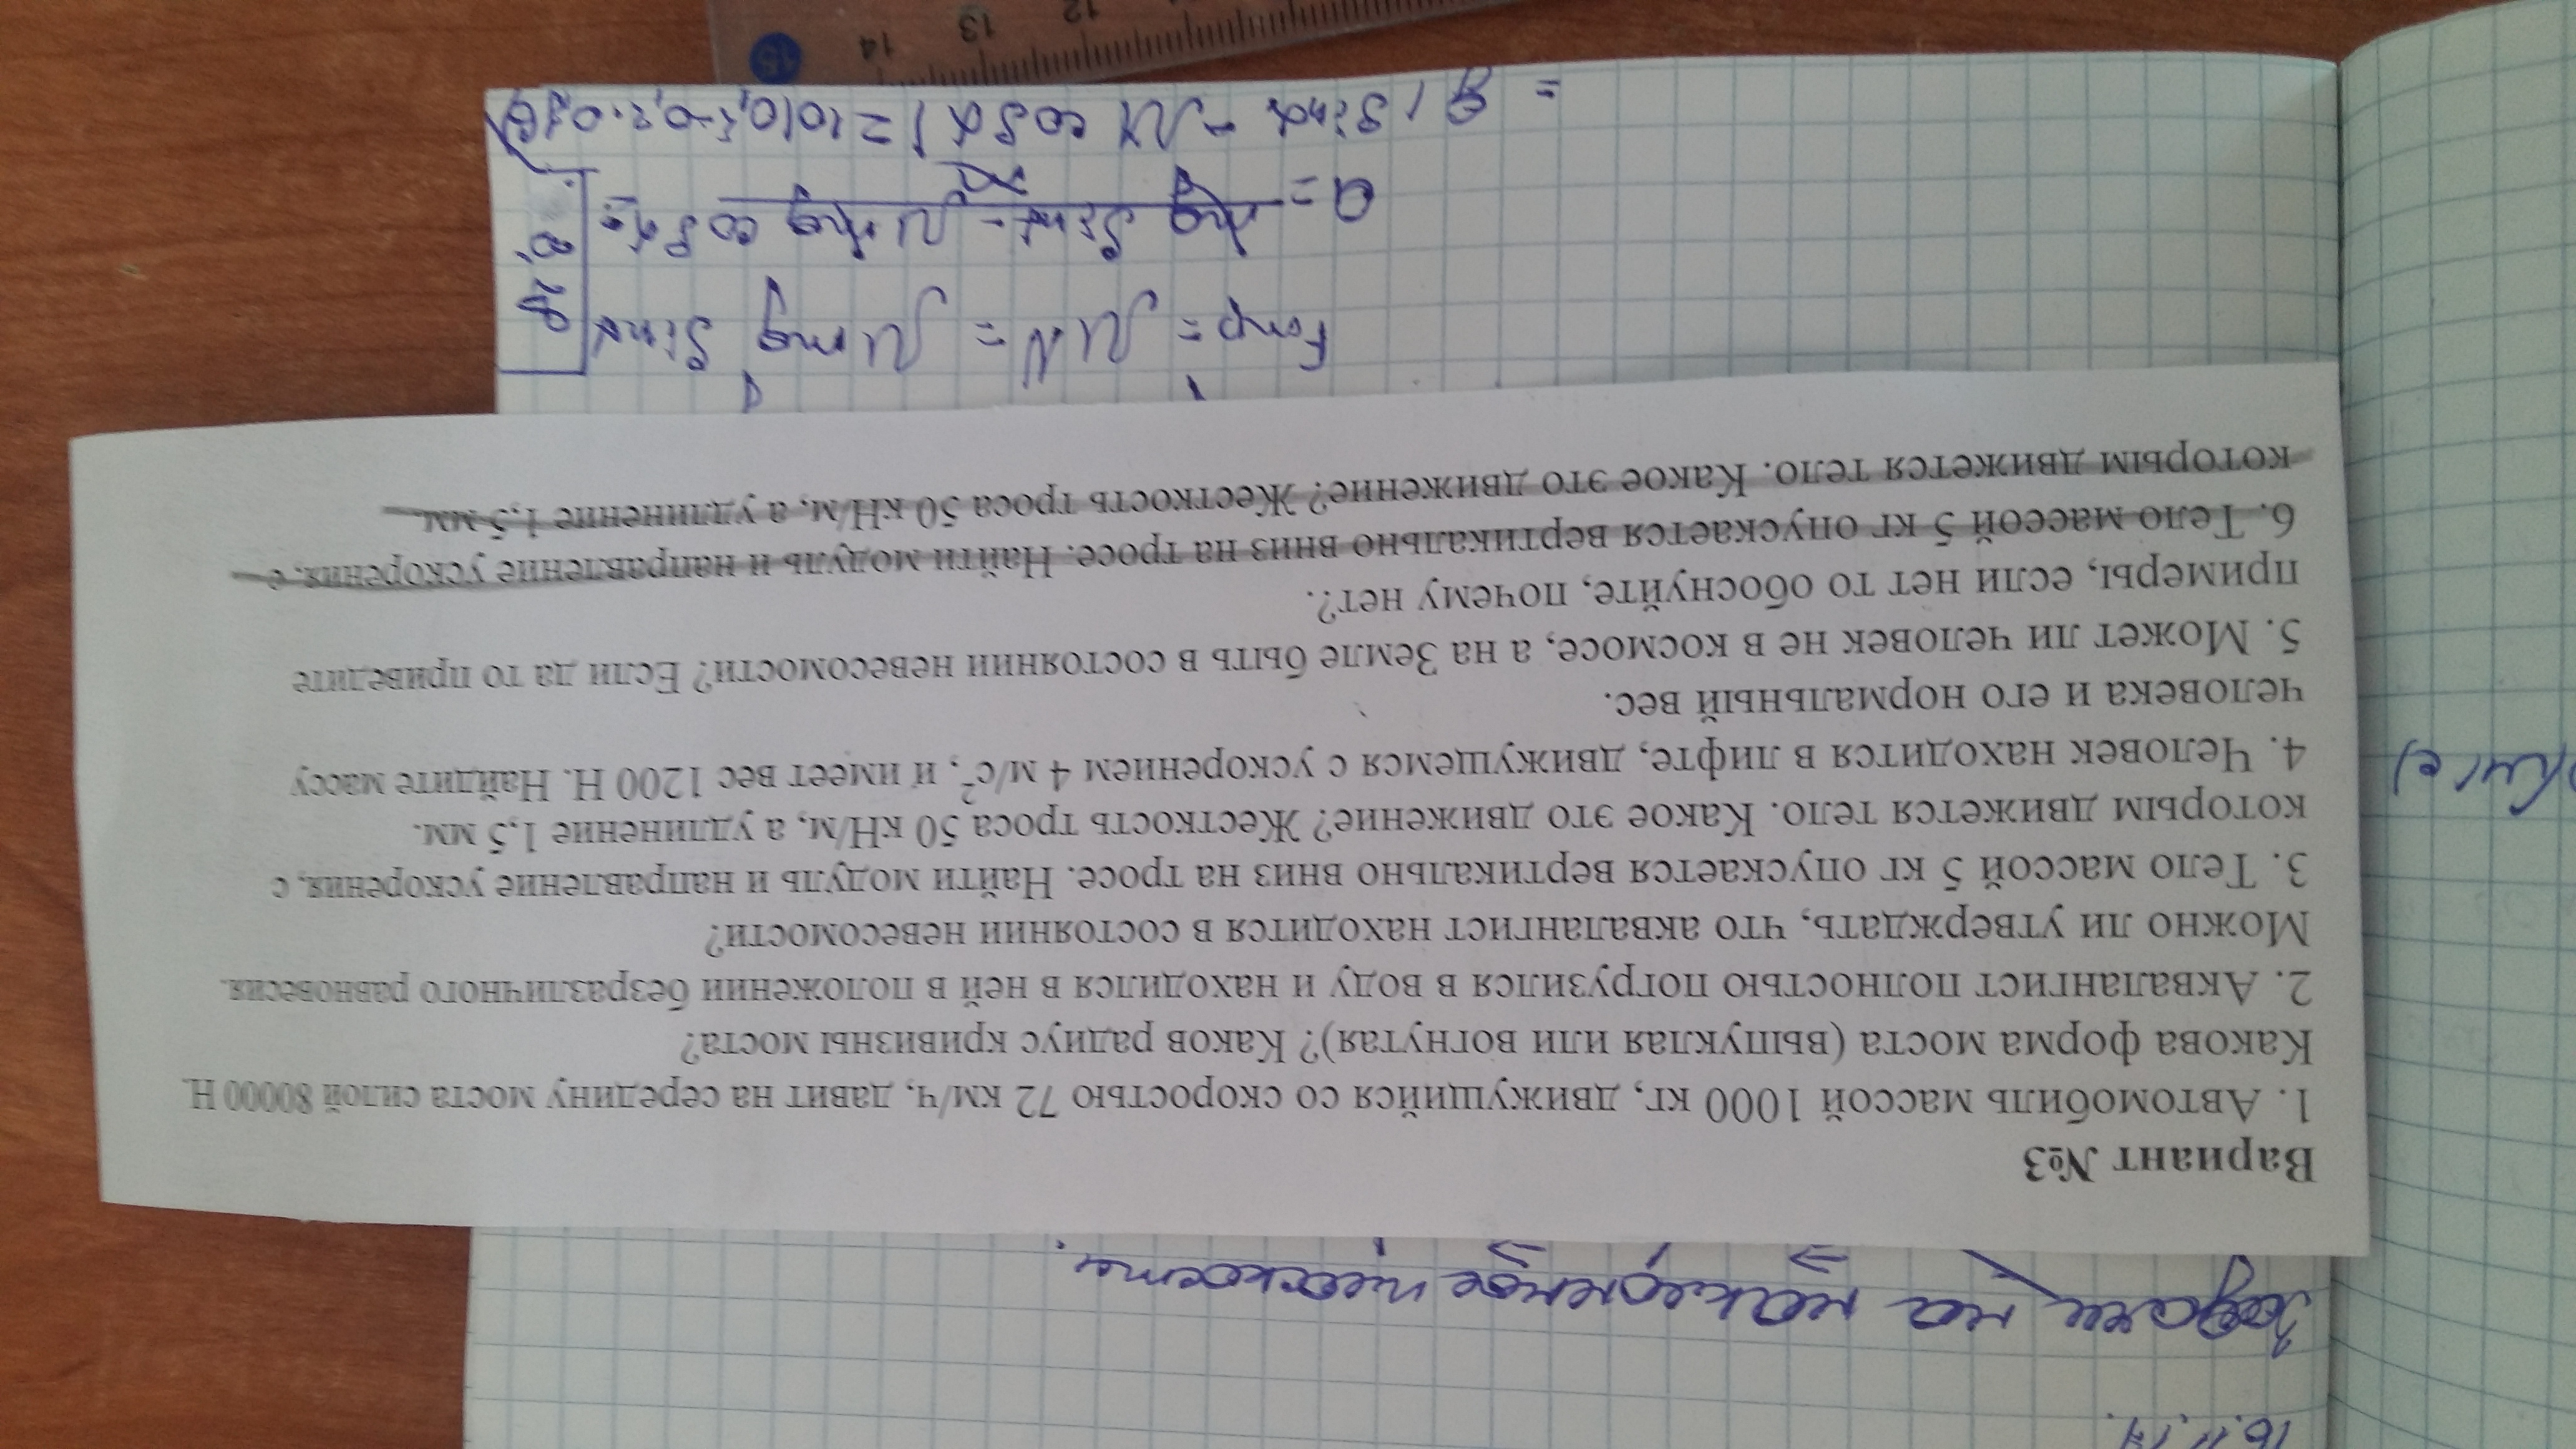 16.11.17.
Задачи на наклонное плоскости.
Вариант №3
1. Автомобиль массой 1000 кг, движущийся со скоростью 72 км/ч, давит на середину моста силой 80000 Н.
Какова форма моста (выпуклая или вогнутая)? Каков радиус кривизны моста?
2. Аквалангист полностью погрузился в воду и находился в ней в положении безразличного равновесия.
Можно ли утверждать, что аквалангист находится в состоянии невесомости?
3. Тело массой 5 кг опускается вертикально вниз на тросе. Найти модуль и направление ускорения, с
которым движется тело. Какое это движение? Жесткость троса 50 кН/м, а удлинение 1,5 мм.
4. Человек находится в лифте, движущемся с ускорением 4 м/с², и имеет вес 1200 Н. Найдите массу
человека и его нормальный вес.
5. Может ли человек не в космосе, а на Земле быть в состоянии невесомости? Если да то приведите
примеры, если нет то обоснуйте, почему нет?.
6. Тело массой 5 кг опускается вертикально вниз на тросе. Найти модуль и направление ускорения, с
которым движется тело. Какое это движение? Жесткость троса 50 кН/м, а удлинение 1,5 мм.
Fтр = MN = Mmg sinα
a = mg sinα - Mmg cosα =
= g(sinα - M cosα) = 10(0,5-0,2·0,86)
12 13 14 15